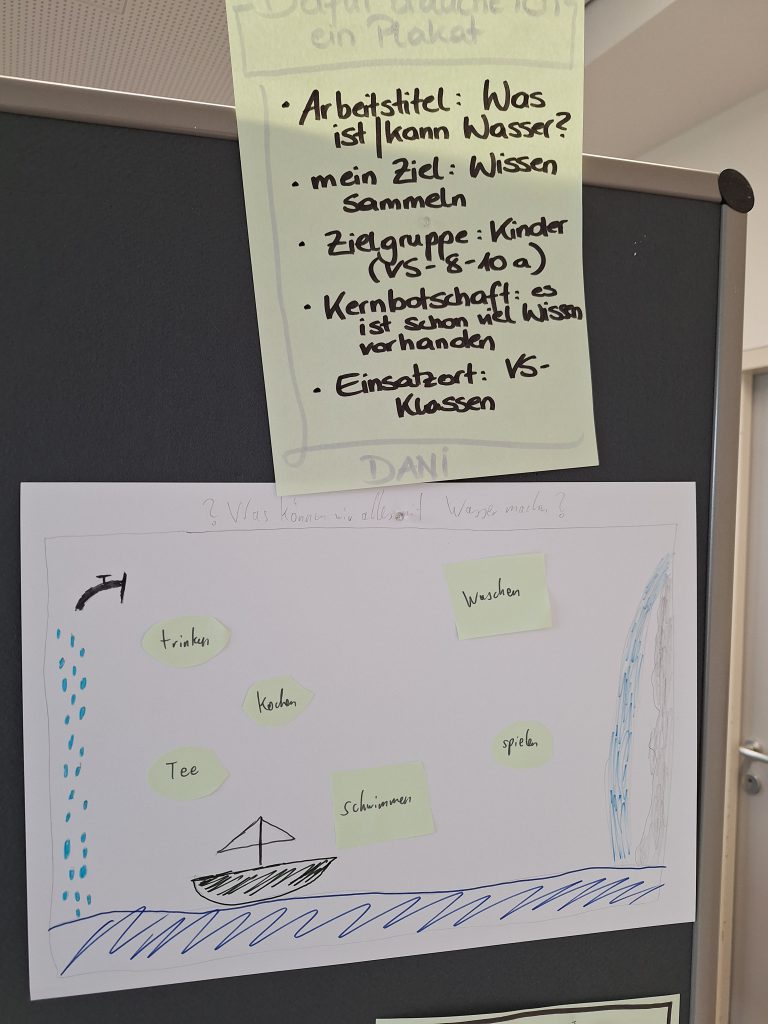 Dafür brauche ich
ein Plakat
• Arbeitstitel: Was
ist/kann Wasser?
• mein Ziel: Wissen
sammeln
• Zielgruppe: Kinder
(VS - 8-10 a)
• Kernbotschaft: es
ist schon viel Wissen
vorhanden
• Einsatzort: VS-
Klassen
DANI
? Was können wir alles mit Wasser machen?
Waschen
trinken
Kochen
spielen
Tee
schwimmen